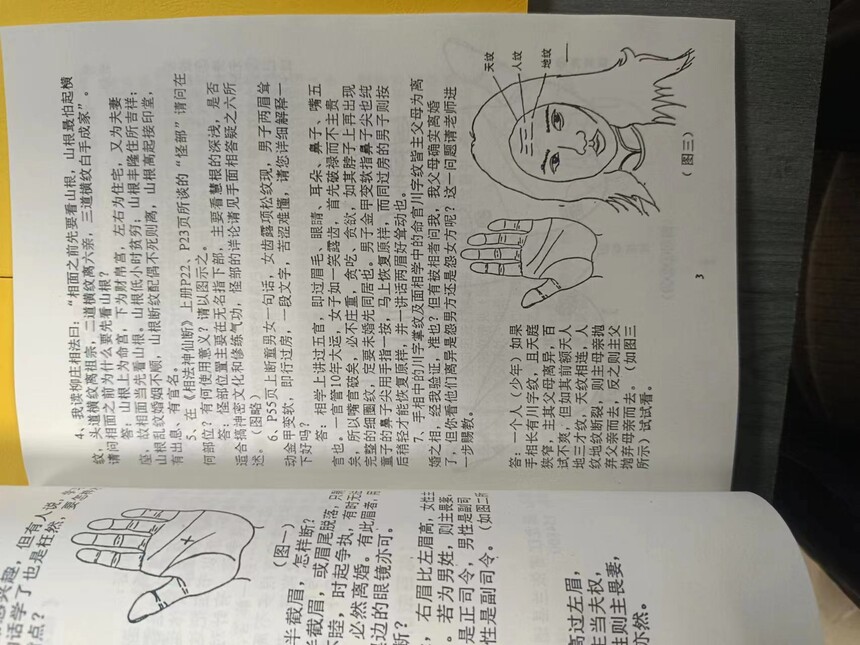 感兴趣，但有人说，
话学了也是枉然，
点？
（图一）
半截眉，怎样断？
半截眉，或眉尾脱落，
不睦，时起争执，有时无
必然离婚。有此眉者，
边的眼镜亦可。
断？
，右眉比左眉高，女性主
。若为男姓，则主畏妻
是正司令，男性是副司
性是副司令。（如图二所
高过左眉，
主当夫权，
性则主畏妻，
亦然。
4、我读柳庄相法曰：“相面之前先要看山根，山根最怕起横
纹，头道横纹离祖宗，二道横纹离六亲，三道横纹白手成家”。
请问相面之前为什么要先看山根？
答：山根上为命宫，下为财帛宫，左右为住宅，又为夫妻
座，故相面当先看山根。山根低小时贫穷；山根丰隆住所吉祥；
山根乱纹婚姻不顺，山根断纹配偶不死则离，山根高起接印堂，
有出息、有官名。
5、在《相法神仙断》上册P22、P23页所谈的“怪部”请问在
何部位？有何使用意义？请以图示之。
答：怪部位置主要在无名指下部，主要看慧根的深浅，是否
适合搞神密文化和修练气功，怪部的详论请见手面相答疑之六所
述。（图略）
6、P55页上断蚕男女一句话，女齿露项松纹现，男子两眉耸
动金甲变软，即行过房，一段文字，苦涩难懂，请您详细解释一
下好吗？
答：相学上讲过五官，即过眉毛、眼睛、耳朵、鼻子、嘴五
官也。一官管10年大运，女子如一笑露齿，首先破禄而不主贵
矣，所以嘴官破矣，必不庄重，贪吃，贪欲，如其脖子上再出现
完整的细圈纹，定要未婚先同居也。男子金甲变软指鼻子尖也纯
童子的鼻子尖用手指一按，马上恢复原样，而同过房的男子则按
后稍轻才能恢复原样，并一讲话两眉好耸动也。
7、手相中的川字掌纹及面相学中的命宫川字纹皆主父母为离
婚之相，经我验证，准也？但有被相者问我，我父母确实离婚
了，但你看他们离异是怨男方还是怨女方呢？这一问题请老师进
一步赐教。
答：一个人（少年）如果
手相长有川字纹，且天庭
狭窄，主其父母离异，百
试不爽，但如其前额天人
地三才纹，天纹相连，人
纹地纹断裂，则主母亲抛
弃父亲而去，反之则主父
抛弃母亲而去。（如图三
所示）试试看。
天纹
人纹
地纹
（图三）
3